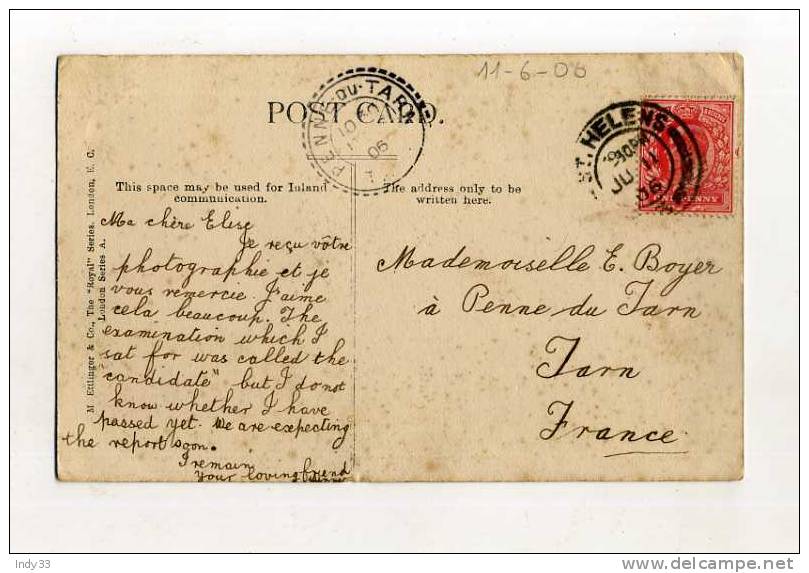 11-6-06
POST CARD.
PENNE-DU-TARN
10
06
ST. HELENS
JU 11
06
ONE PENNY
This space may be used for Inland
communication.
The address only to be
written here.
M. Ettlinger & Co., The "Royal" Series. London, E. C.
London Series A.
Ma chère Elise
Je reçu vôtre
photographie et je
vous remercie J'aime
cela beaucoup. The
examination which I
sat for was called the
"candidate" but I do not
know whether I have
passed yet. We are expecting
the report soon.
I remain
your loving friend
Mademoiselle E. Boyer
à Penne du Tarn
Tarn
France
Indy33
delcampe.net